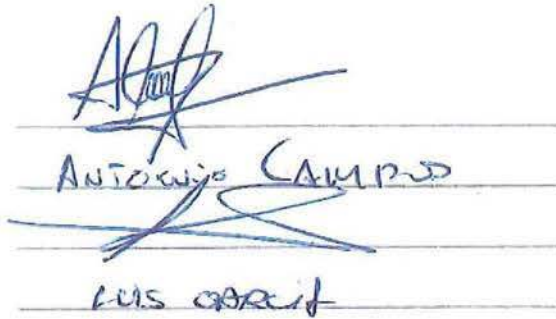 ANTONIO CAMPOS
LUIS GARCIA